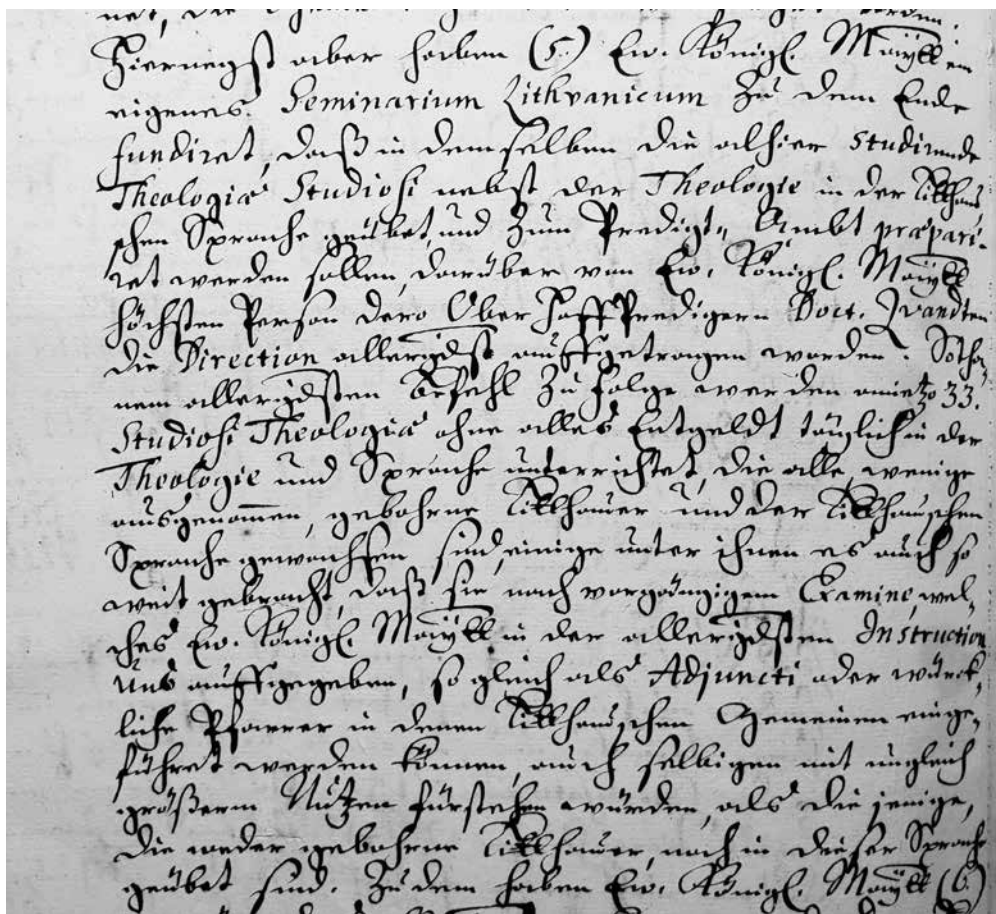 Hiernegst aber haben (5.) Ew. Königl. Maytt ein
eigenes Seminarium Lithvanicum zu dem Ende
fundiret, daß in demselben die alhier Studirende
Theologiæ Studiosi nebst der Theologie in der Litthaui
schen Sprache geübet, und zum Predigt„ Ambt præpari-
ret werden sollen, darüber von Ew. Königl. Maytt
höchsten Person dero Ober HoffPredigern Doct. Qvandten
die Direction allergdst auffgetragen worden. Sotha-
nem allergdsten Befehl zu folge werden anietzo 33.
Studiosi Theologiæ ohne alles Entgeldt täglich in der
Theologie und Sprache unterrichtet, die alle, wenige
ausgenom̅en, gebohrne Litthauer und der Litthauschen
Sprache gewachsen sind, einige unter ihnen es auch so
weit gebracht, daß sie nach vorgängigem Examine, wel-
ches Ew. Königl. Maytt in der allergdsten Instruction
Uns auffgegeben, so gleich als Adjuncti oder würck-
liche Pfarrer in denen Litthauschen Gemeinen einge-
führet werden können, auch selbigen mit ungleich
größerm Nutzen fürstehen würden, als die jenige,
die weder gebohrne Litthauer, noch in dieser Sprache
geübet sind. Zu dem haben Ew. Königl. Maytt (6.)